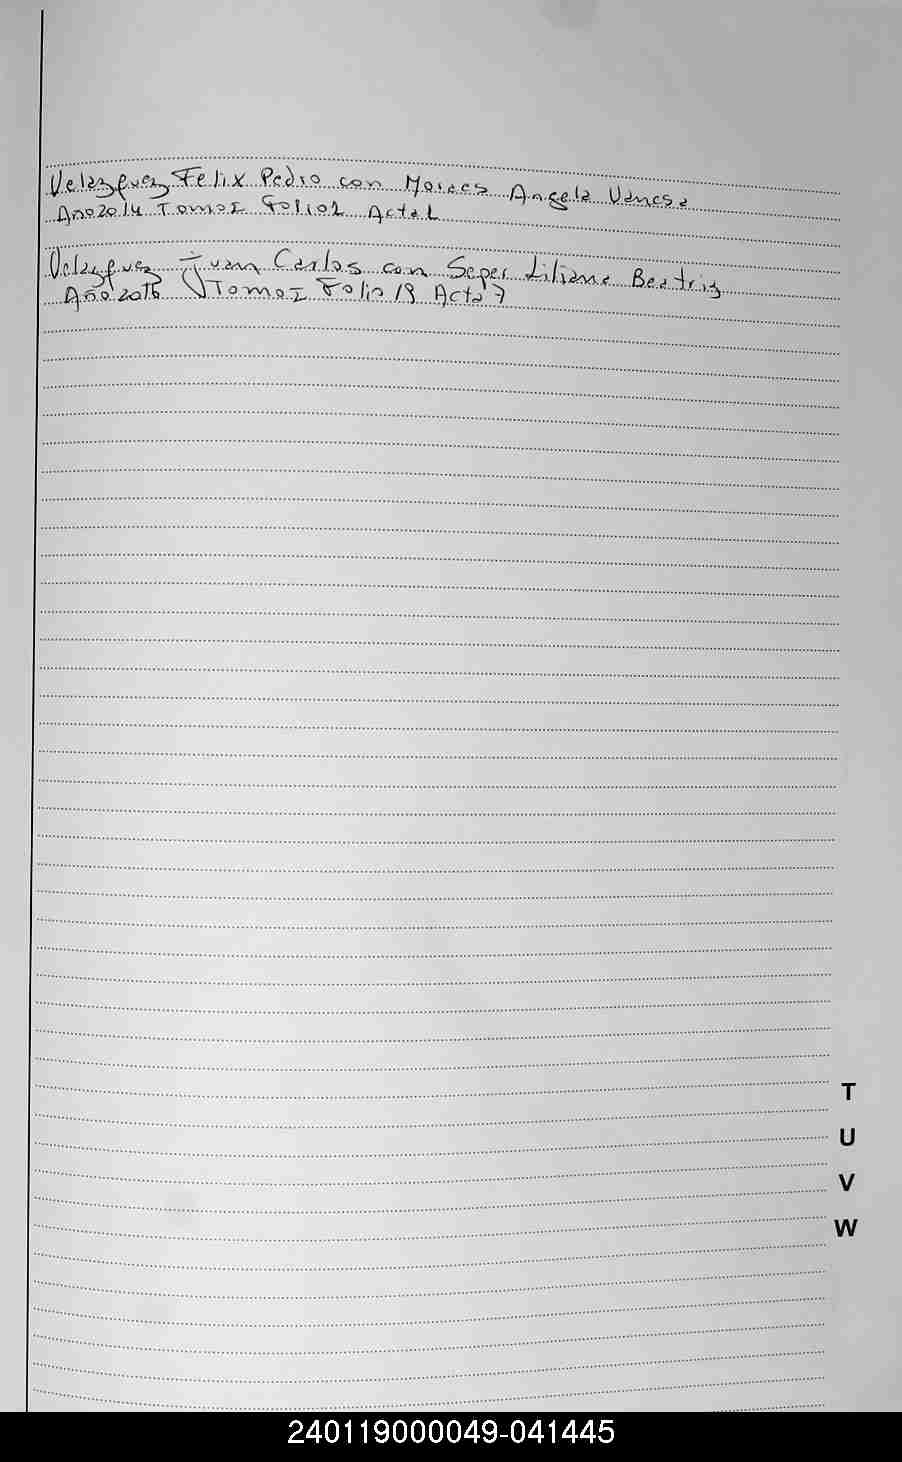 Velazquez Felix Pedro con Moraes Angela Vanesa
Año 2014 Tomo I Folio 2 Acta 1
Velazquez Juan Carlos con Seper Liliana Beatriz
Año 2016 Tomo I Folio 19 Acta 7
T
U
V
W
240119000049-041445